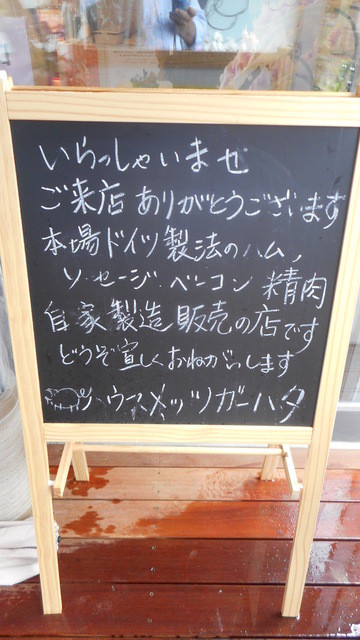 いらっしゃいませ
ご来店ありがとうございます
本場ドイツ製法のハム,
ソーセージ.ベーコン 精肉
自家製造販売の店です
どうぞ宜しくおねがいします
ハウスメッツガーハタ